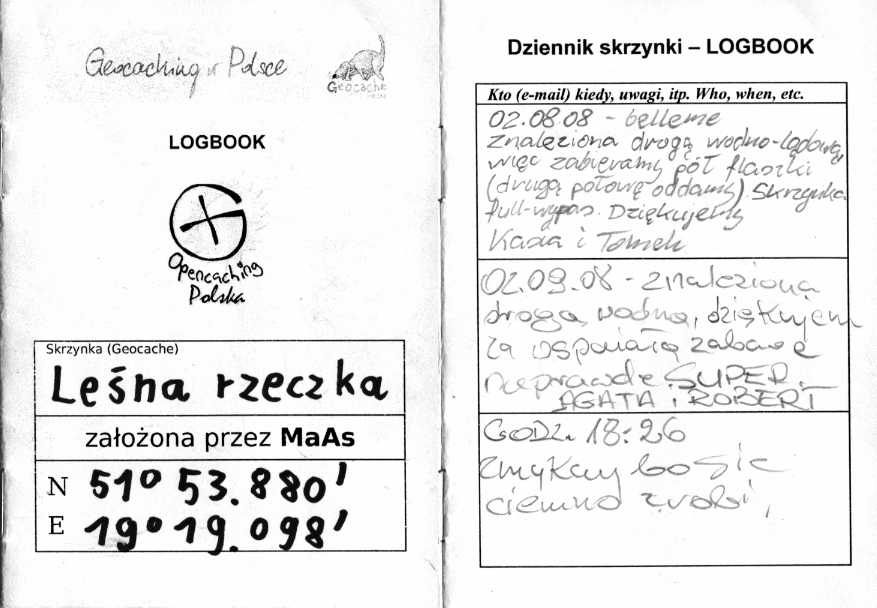 Geocaching w Polsce
Geocache
LOGBOOK
Opencaching
Polska
Skrzynka (Geocache)
Leśna rzeczka
założona przez MaAs
N 51° 53.880'
E 19° 19.098'
Dziennik skrzynki – LOGBOOK
Kto (e-mail) kiedy, uwagi, itp. Who, when, etc.
02.08.08 - belleme
Znaleziona drogą wodno-lądową
więc zabieramy pół flaszki
(drugą połowę oddamy). Skrzynka
full-wypas. Dziękujemy
Kasia i Tomek
02.09.08 - znaleziona
drogą wodną, dziękujem
za wspaniałą zabawę
naprawdę SUPER.
AGATA i ROBERT
GODZ. 18:26
zmykamy bo się
ciemno zrobi,